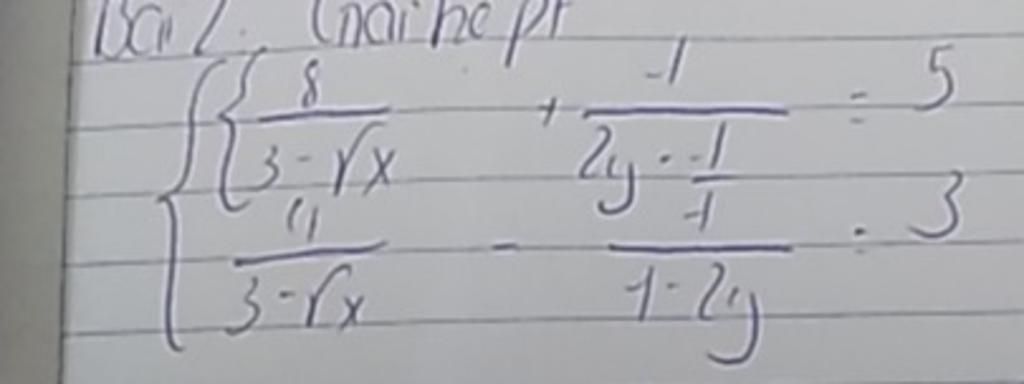 Bài 2. Giải hệ pt
8/(3-√x) + 1/(2y-1) = 5
4/(3-√x) - 1/(1-2y) = 3